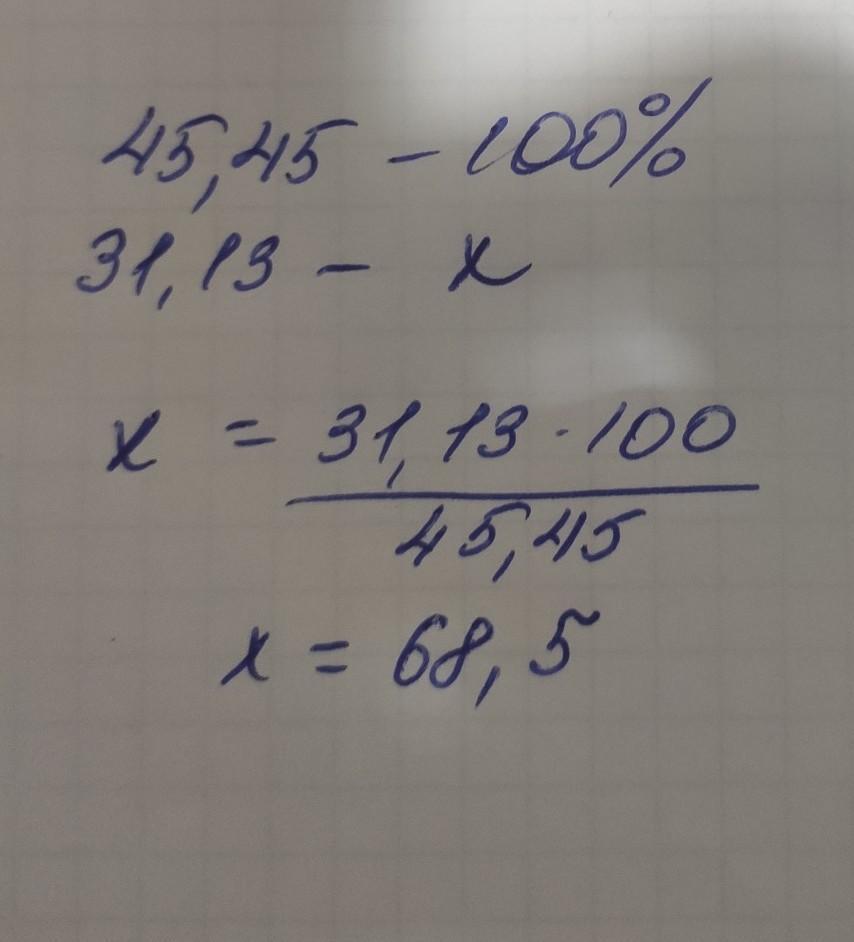 45,45 - 100%
31,13 - x
x = 31,13 · 100
45,45
x = 68,5